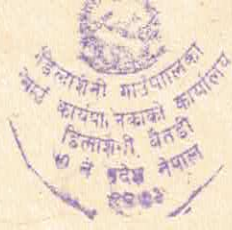 डिलाशैनी गाउँपालिका
गाउँ कार्यपालिकाको कार्यालय
डिलाशैनी, बैतडी
७ नं प्रदेश नेपाल